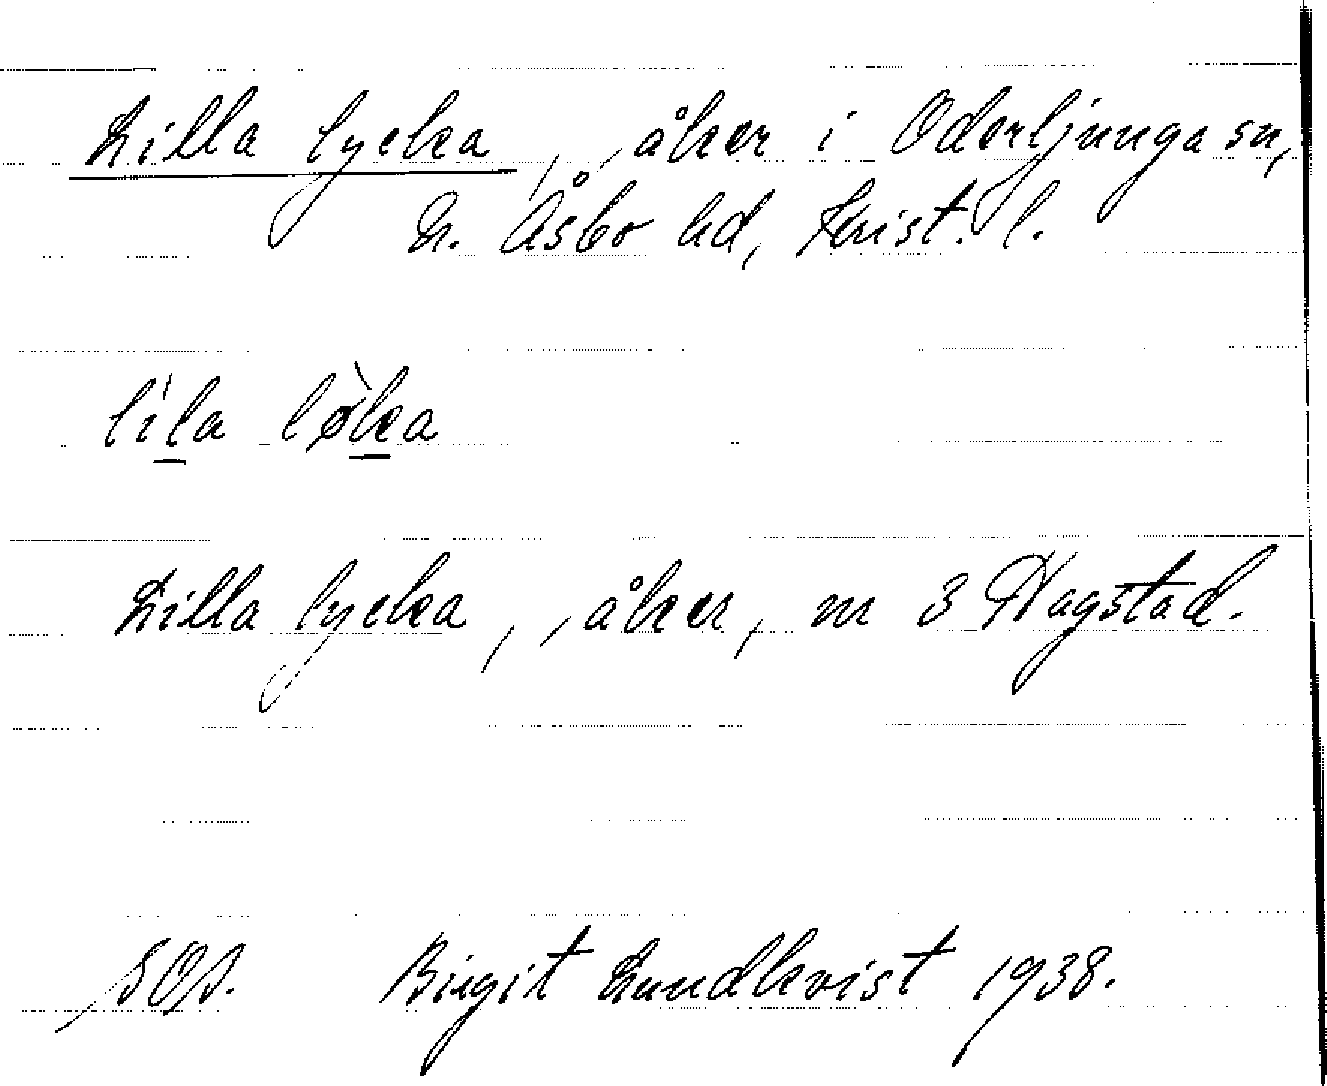 Lilla lycka, åker i Oderljunga sn,
N. Åsbo hd, Krist. l.
lìla lø̀ka
Lilla lycka, åker, nr 3 Hagstad.
SOA. Birgit Lundkvist 1938.